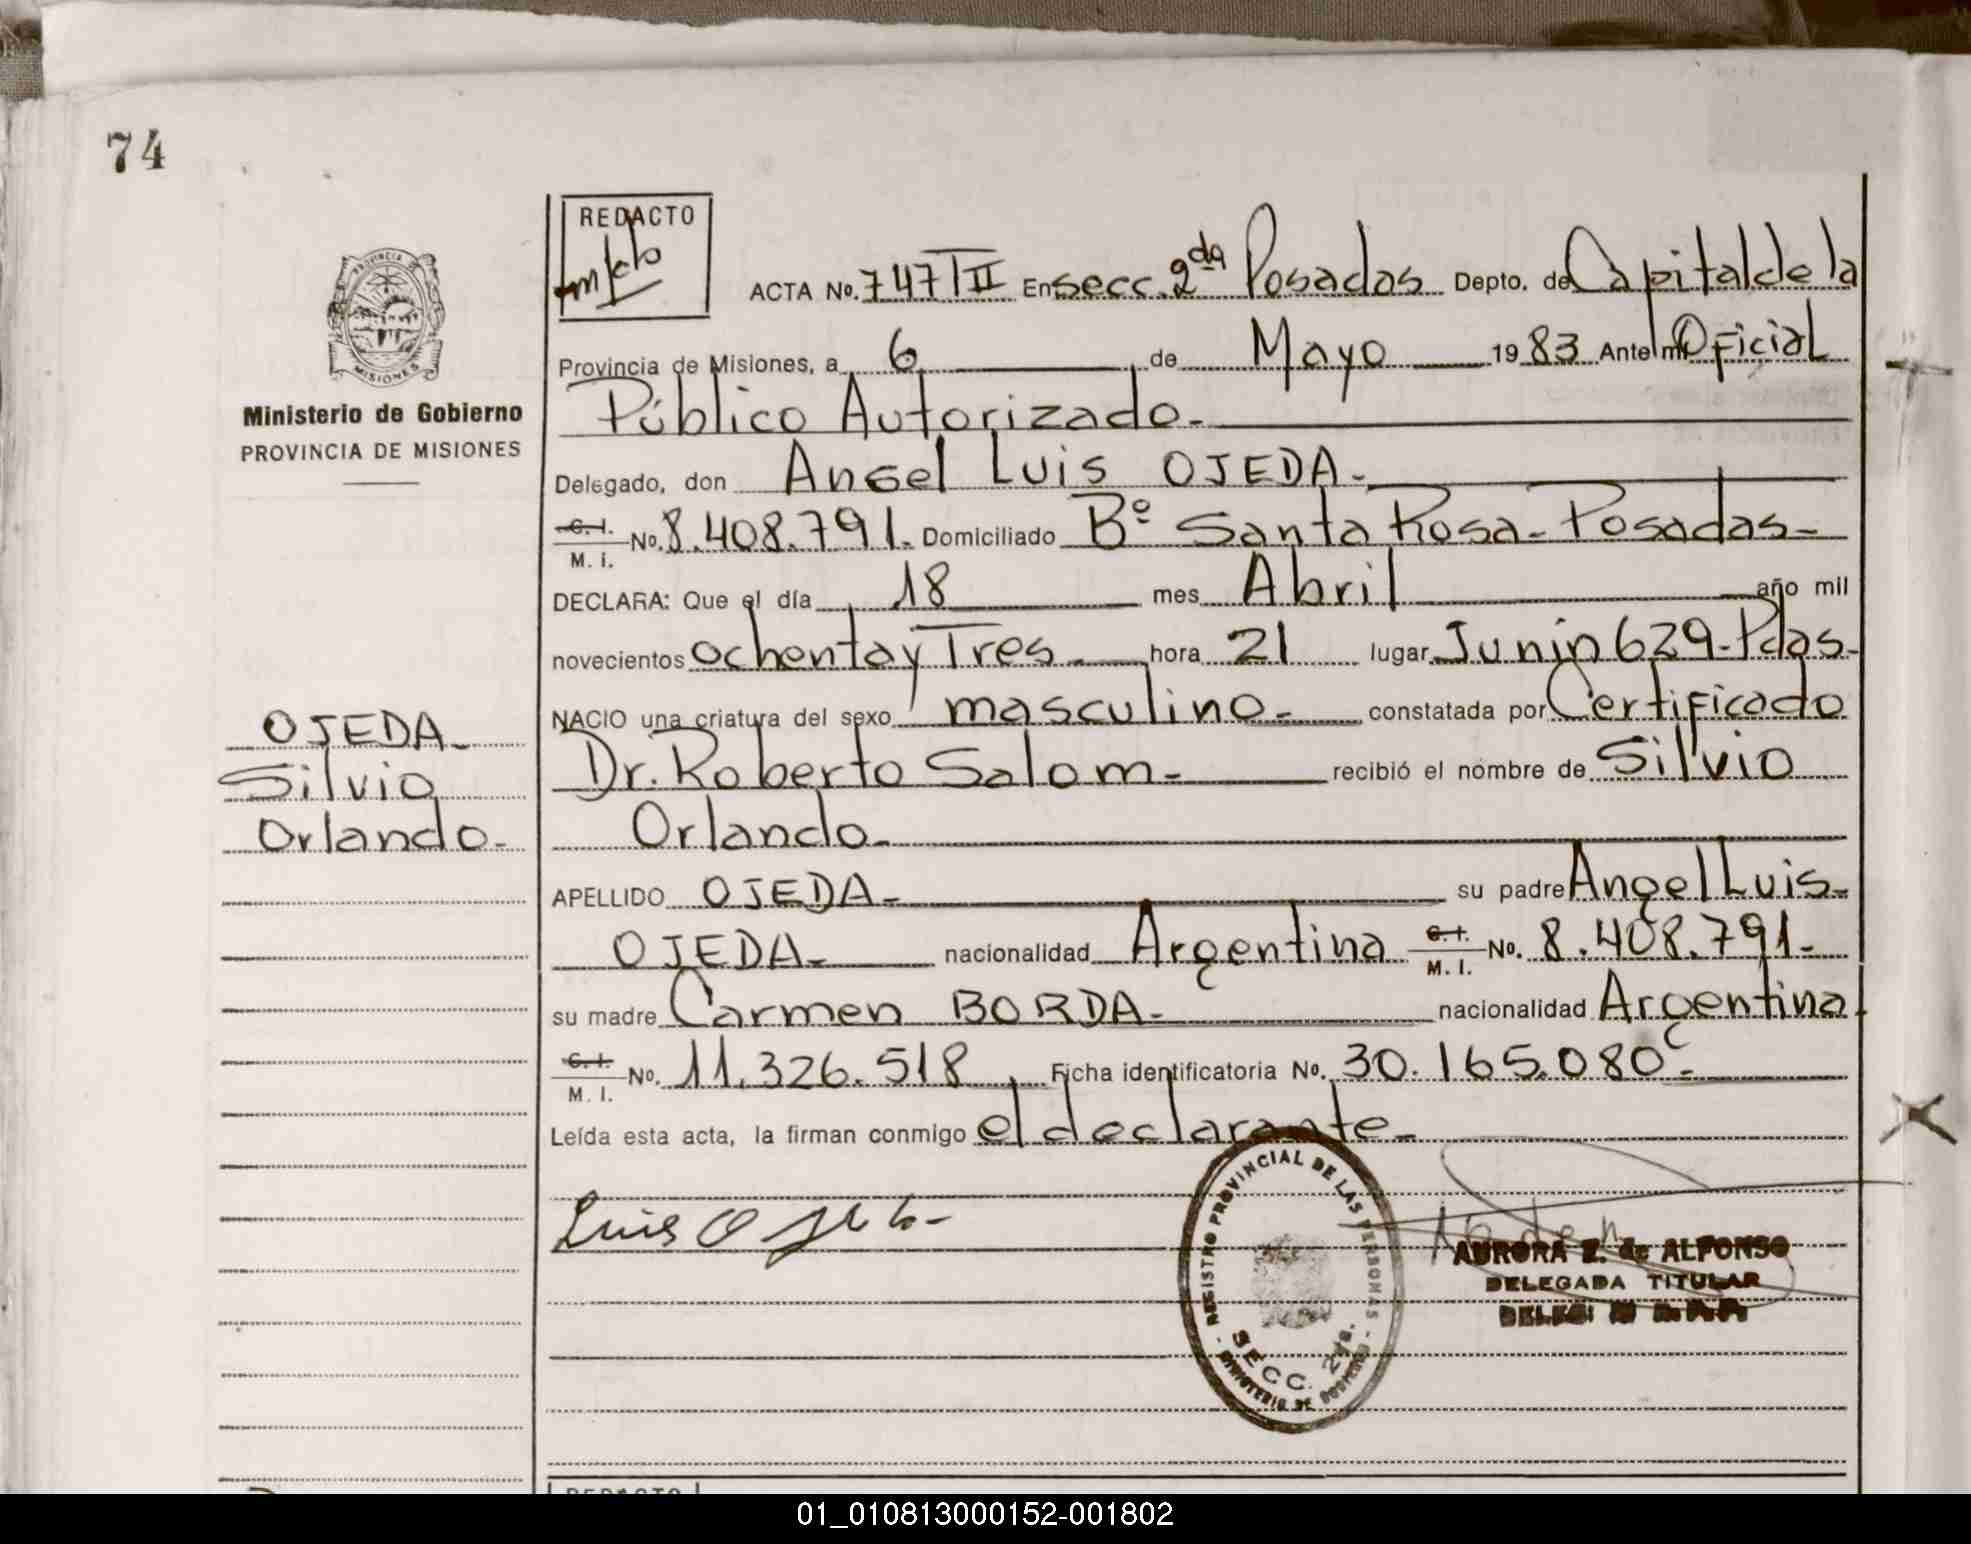 74
REDACTO
PROVINCIA DE
MISIONES
Ministerio de Gobierno
PROVINCIA DE MISIONES
ACTA No. 747 TII En secc. 2da Posadas Depto. de Capital de la
Provincia de Misiones, a 6 de Mayo 1983 Ante mi Oficial
Público Autorizado.-
Delegado, don Angel Luis OJEDA.-
C. I.
M. I. No. 8.408.791.- Domiciliado Bº Santa Rosa - Posadas -
DECLARA: Que el día 18 mes Abril año mil
novecientos ochenta y Tres - hora 21 lugar Junin 629 - Pdas -
NACIO una criatura del sexo masculino - constatada por Certificado
Dr. Roberto Salom - recibió el nombre de Silvio
Orlando -
OJEDA -
Silvio
Orlando -
APELLIDO OJEDA - su padre Angel Luis -
OJEDA - nacionalidad Argentina C. I.
M. I. No. 8.408.791 -
su madre Carmen BORDA - nacionalidad Argentina -
C. I.
M. I. No. 11.326.518 Ficha identificatoria No. 30.165.080 -
Leída esta acta, la firman conmigo el declarante -
Luis Ojeda -
REGISTRO PROVINCIAL DE LAS PERSONAS -
SECC. 2da.
MINISTERIO DE GOBIERNO
AURORA Z. de ALFONSO
DELEGADA TITULAR
REDACTO
01_010813000152-001802